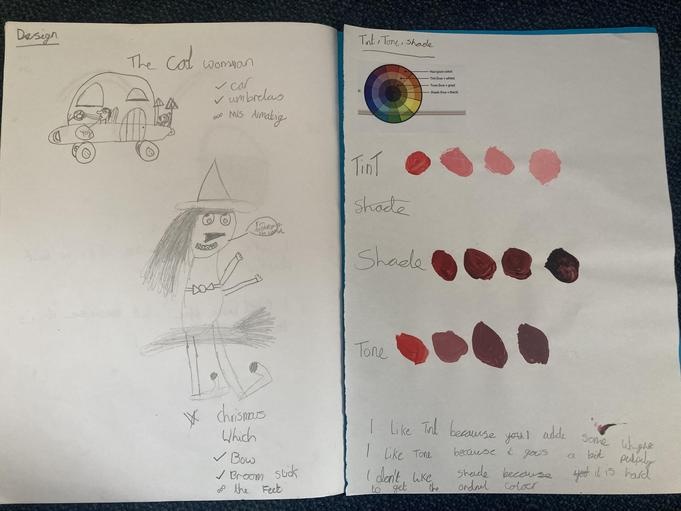 Design
The cat woman
✓ car
✓ umbrelas
∞ mis
✗ chrismas
Which
✓ Bow
✓ Broom stick
∞ the Feet
Tint, Tone, Shade
Tint
Shade
Shade
Tone
I Like Tint because you add some
I Like Tone because it gows a bit
I don't like shade because it is hard
to get the colour